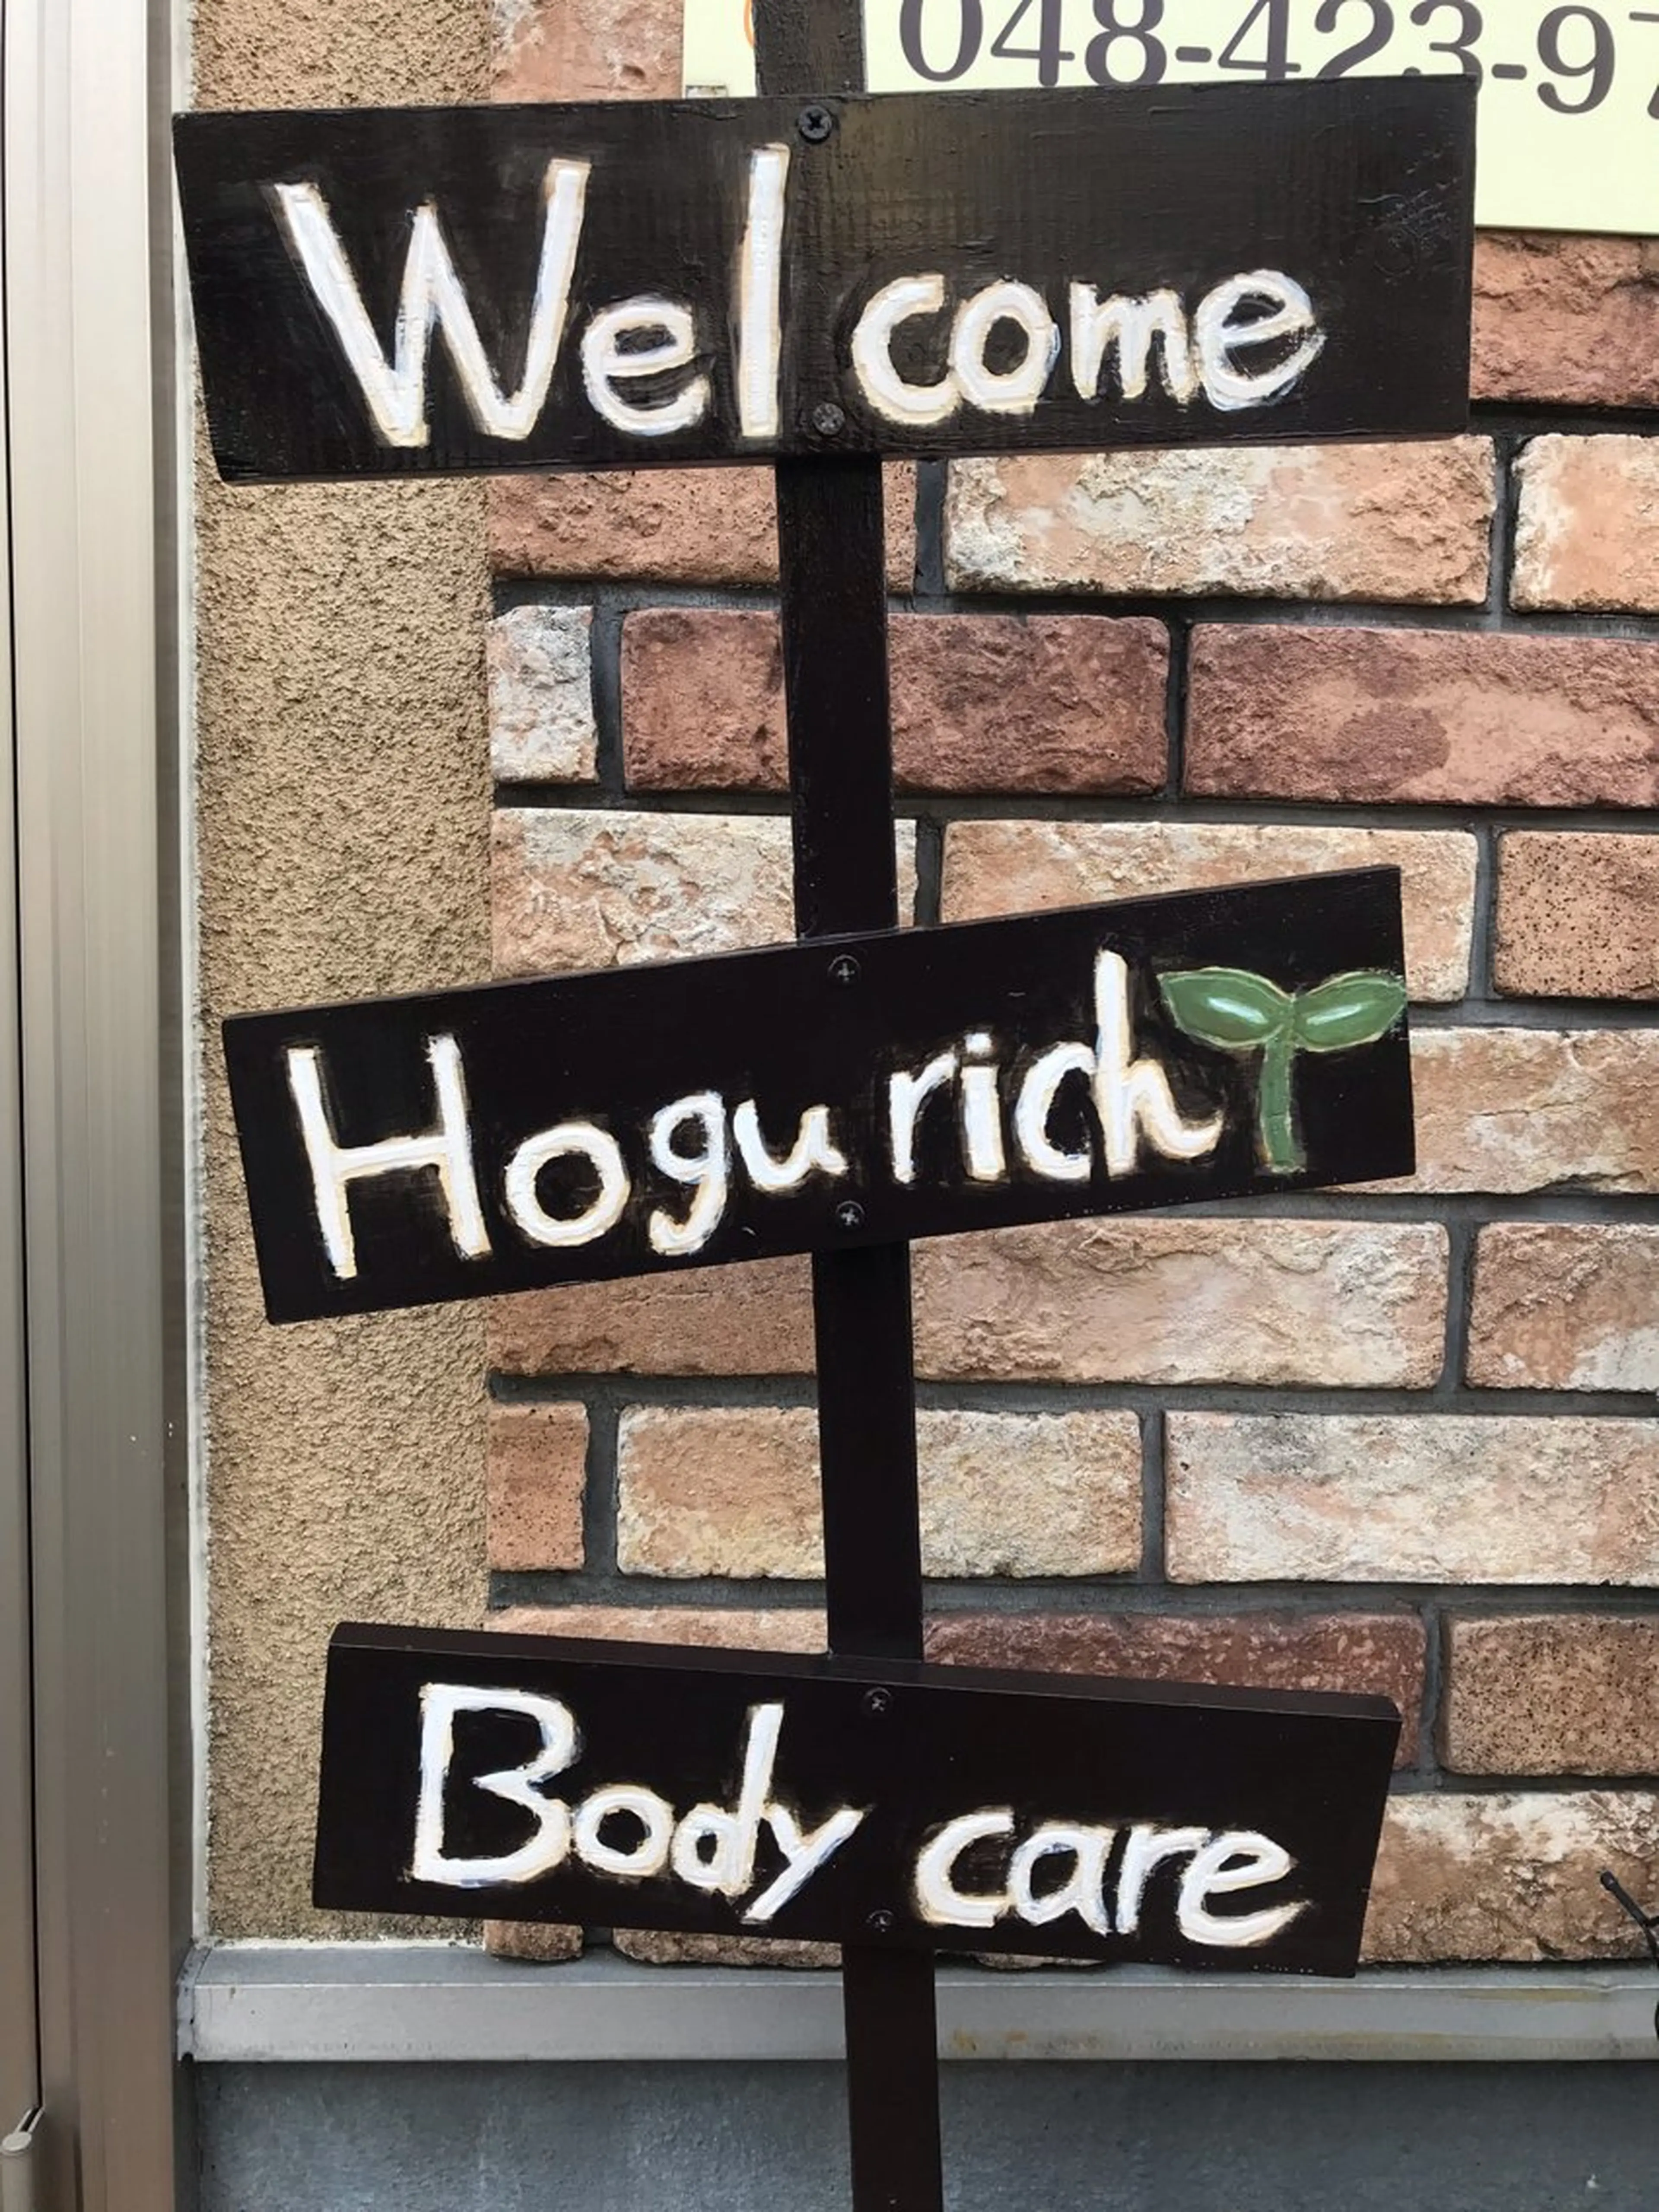 048-423-97
Welcome
Hogurich
Body care